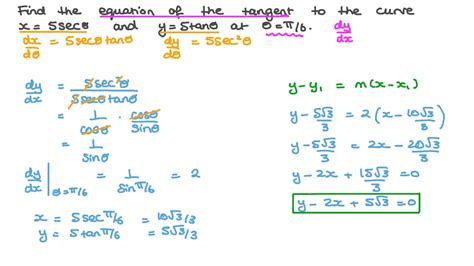 Find the equation of the tangent to the curve
x = 5secθ and y = 5tanθ at θ = π/6. dy/dx
dx/dθ = 5secθtanθ dy/dθ = 5sec²θ
dy/dx = 5sec²θ / 5secθtanθ
= 1/cosθ · cosθ/sinθ
= 1/sinθ
dy/dx | θ=π/6 = 1/sinπ/6 = 2
x = 5secπ/6 = 10√3/3
y = 5tanπ/6 = 5√3/3
y - y₁ = m(x - x₁)
y - 5√3/3 = 2(x - 10√3/3)
y - 5√3/3 = 2x - 20√3/3
y - 2x + 15√3/3 = 0
y - 2x + 5√3 = 0